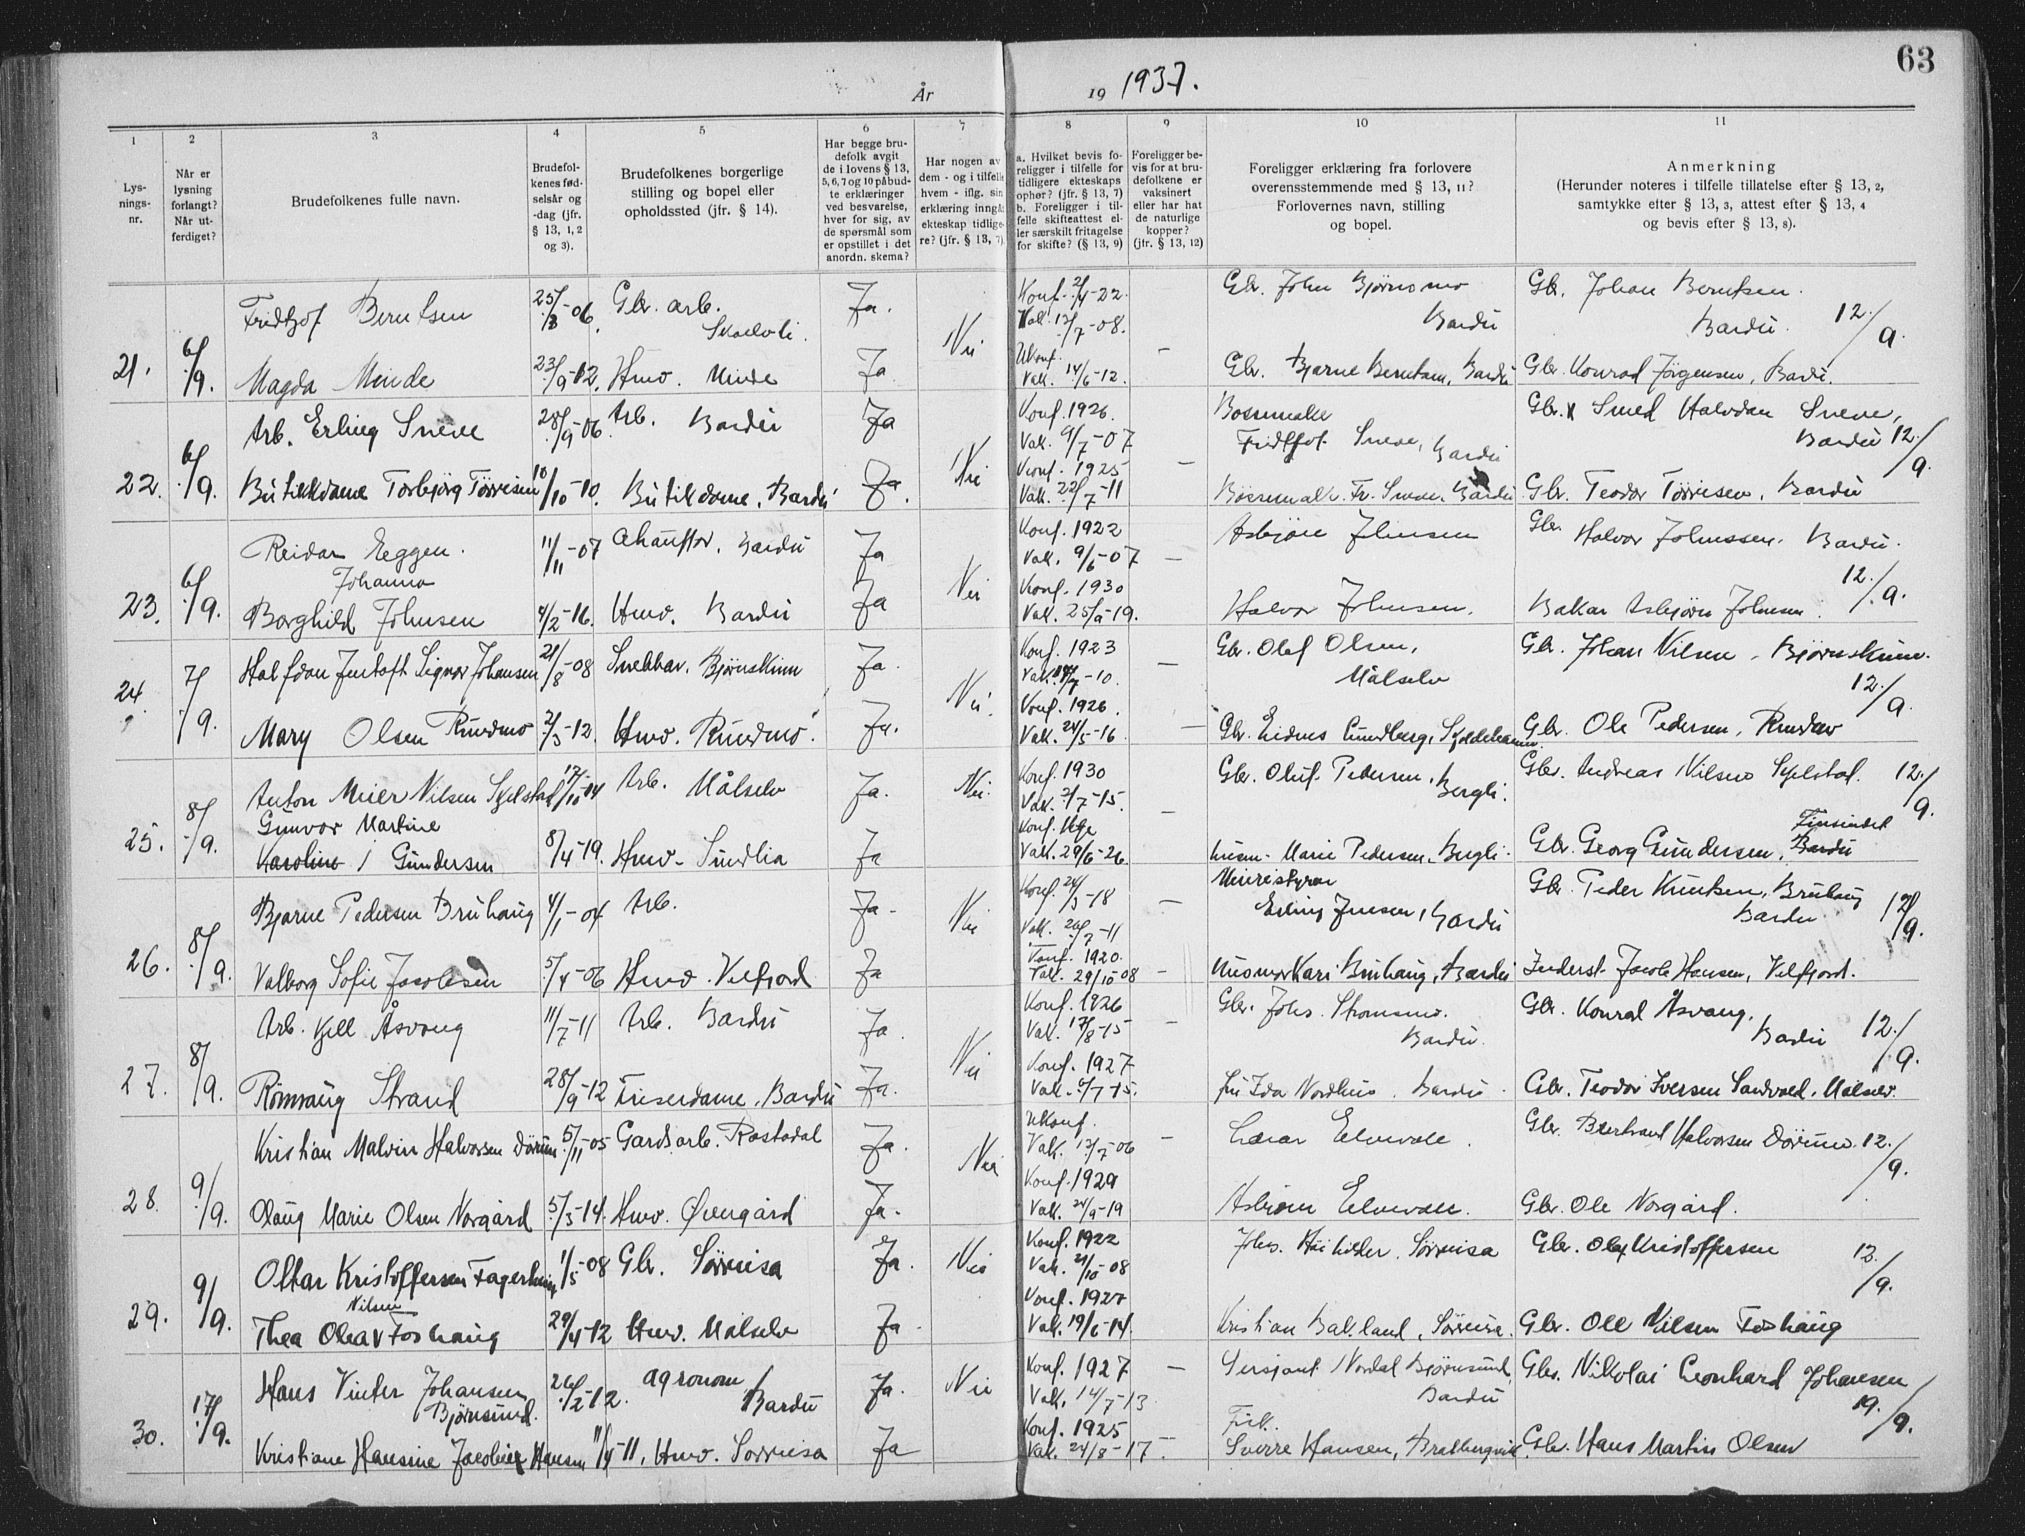 63
År 19 1937.
1 2 3 4 5 6 7 8 9 10 11
Lysningsnr.
Når er lysning forlangt? Når utferdiget?
Brudefolkenes fulle navn.
Brudefolkenes fødselsår og -dag (jfr. § 13, 1, 2 og 3).
Brudefolkenes borgerlige stilling og bopel eller opholdssted (jfr. § 14).
Har begge brudefolk avgit de i lovens § 13, 5, 6, 7 og 10 påbudte erklæringer ved besvarelse, hver for sig, av de spørsmål som er opstillet i det anordn. skema?
Har nogen av dem - og i tilfelle hvem - iflg. sin erklæring inngåt ekteskap tidligere? (jfr. § 13, 7)
a. Hvilket bevis foreligger i tilfelle for tidligere ekteskaps ophør? (jfr. § 13, 7) b. Foreligger i tilfelle skifteattest eller særskilt fritagelse for skifte? (§ 13, 9)
Foreligger bevis for at brudefolkene er vaksinert eller har hat de naturlige kopper? (jfr. § 13, 12)
Foreligger erklæring fra forlovere overensstemmende med § 13, 11? Forlovernes navn, stilling og bopel.
Anmerkning (Herunder noteres i tilfelle tillatelse efter § 13, 2, samtykke efter § 13, 3, attest efter § 13, 4 og bevis efter § 13, 8).
Fridtjof Berntsen 25/8-06. Gbr. arb. Skoelvli. Ja. Konf. 2/4-22. Vak. 13/7-08. Gbr. John Bjørnsmo Bardu Gbr. Johan Berntsen. Bardu. 12./9.
21. 6/9. Magda Minde 23/9-12. Husv. Minde Ja Nei Ukonf. Vak. 14/6-12. Gbr. Bjarne Berntsen, Bardu Gbr. Konrad Jørgensen, Bardu.
Arb. Erling Sneve 28/9-06. Arb. Bardu Ja Konf. 1926. Vak. 9/7-07 Fridtjof Sneve, Bardu Gbr. x Smed Halvdan Sneve, Bardu 12./9.
22. 6/9. Butikkdame Torbjørg Tørrisen 10/10-10. Butikdame, Bardu Ja. Nei Konf. 1925 Vak. 22/7-11 Fr. Sneve, Bardu Gbr. Teodor Tørrisen, Bardu
Reidar Eggen. 11/11-07 Chauffør, Bardu Ja Konf. 1922 Vak. 9/6-07 Asbjørn Johnsen Gbr. Halvor Johnssen. Bardu.
23. 6/9. Borghild Johanna Johnsen 4/2-16. Husv. Bardu Ja Nei Konf. 1930 Vak. 25/9-19. Halvor Johnsen. Bakar Asbjørn Johnsen. 12./9.
Halfdan Jentoft Signor Johansen 21/8-08 Snekkar. Bjørnskinn Ja. Konf. 1923 Gbr. Olaf Olsen, Målselv Gbr. Johan Nilsen, Bjørnskinn. 12./9.
24. 7/9. Mary Olsen Rundmo 2/3-12. Husv. Rundmo. Ja. Nei. Konf. 1926. Vak. 24/5-16. Gbr. Ole Pedersen, Rundmo
Anton Meier Nilsen Skjelstad 17/10-14 Arb. Målselv Ja. Nei. Konf. 1930 Vak. 2/7-15. Gbr. Oluf Pedersen, Bergli. Gbr. Andreas Nilsen Skjelstad. 12./9.
25. 8/9. Gunvor Martine Karoline Gundersen 8/4-19. Husv. Sundlia Ja Vak. 29/6-26. Husm. Marie Pedersen, Bergli. Gbr. Georg Gundersen, Finsundet Bardu
Bjarne Pedersen Bruhaug 4/1-04 Arb. Ja. Nei Konf. 24/3-18 Vak. 20/7-11 Meieristyrer Erling Jensen, Bardu Gbr. Peder Knutsen, Bruhaug Bardu 12/9.
26. 8/9. Valborg Sofie Jacobsen 5/4-06 Husv. Velfjord Ja Konf. 1920. Vak. 29/10-08 Husmor Kari Bruhaug, Bardu Inderst Jacob Hansen, Velfjord.
Arb. Kjell Åsvang 11/7-11 Arb. Bardu Ja. Konf. 1926 Vak. 17/8-15 Gbr. Johs. Strømsmo. Bardu. Gbr. Konrad Åsvang. Bardu 12./9.
27. 8/9. Rønnaug Strand 28/9-12 Friserdame, Bardu Ja. Nei Konf. 1927 Vak. 9/7-15. Fru Ida Nordhus. Bardu. Gbr. Teodor Iversen Sandvold, Målselv.
Kristian Malvin Halvorsen Dørum 5/11-05 Gardsarb. Rostadal Ja. Nei Ukonf. Vak. 13/7-06 Einar Elvevoll. Gbr. Bertrand Halvorsen Dørum. 12./9.
28. 9/9. Olaug Marie Olsen Norgård 5/3-14. Husv. Øvergård Ja. Konf. 1929 Vak. 24/9-19 Asbjørn Elvevoll. Gbr. Ole Norgård.
Ottar Kristoffersen Fagerhaug 1/5-08 Gbr. Sørreisa Ja. Nei Konf. 1922 Vak. 21/10-08 Sørreisa Gbr. Olaf Kristoffersen 12./9.
29. 9/9. Thea Olea Nilsen Foshaug 29/4-12 Husv. Målselv Ja. Konf. 1927 Vak. 19/6-14. Kristian Bakland, Sørreisa. Gbr. Ole Nilsen Foshaug
Hans Vinter Johansen Bjørnsund. 26/2-12. agronom Bardu Ja. Nei Konf. 1927 Vak. 14/7-13 Sersjant Nordal Bjørnsund, Bardu Gbr. Nikolai Leonhard Johansen 19./9.
30. 17/9. Kristiane Hansine Jacobine Hansen 11/4-11. Husv. Sørreisa Ja Konf. 1925 Vak. 24/8-17. Fisk. Sverre Hansen, Gbr. Hans Martin Olsen